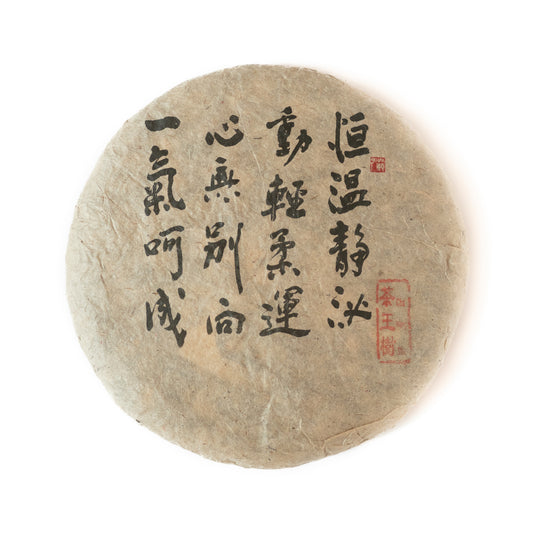 恒温静泌
動輕柔運
心無别向
一氣呵成
茶王樹